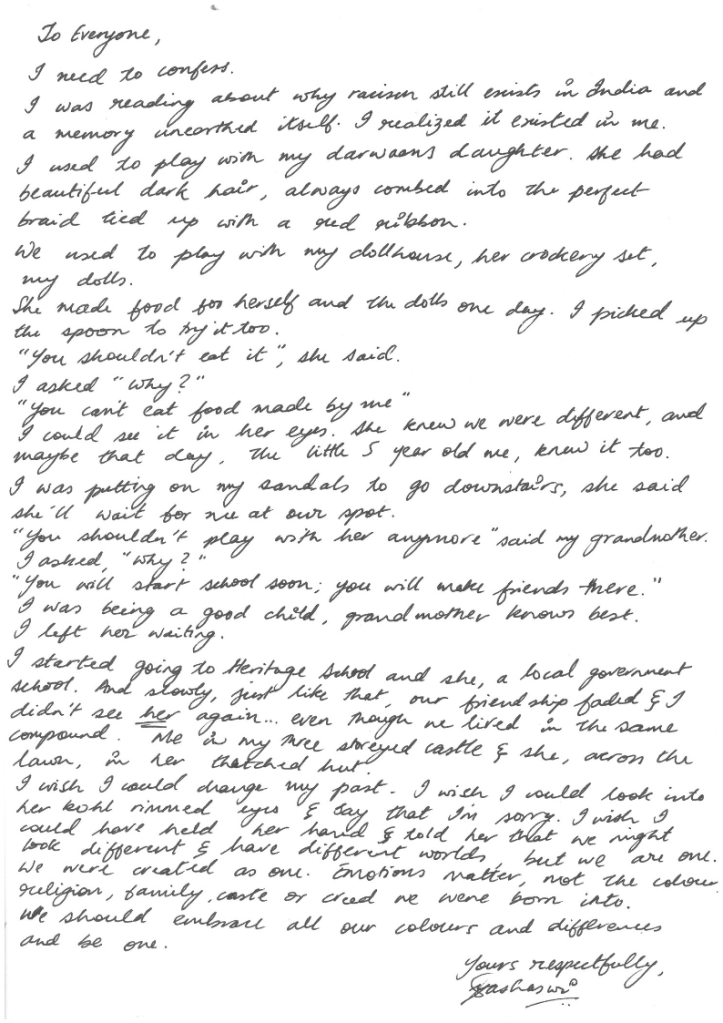 To Everyone,
I need to confess.
I was reading about why racism still exists in India and
a memory unearthed itself. I realized it existed in me.
I used to play with my darwaans daughter. She had
beautiful dark hair, always combed into the perfect
braid tied up with a red ribbon.
We used to play with my dollhouse, her crockery set,
my dolls.
She made food for herself and the dolls one day. I picked up
the spoon to try it too.
"You shouldn't eat it", she said.
I asked "why?"
"You can't eat food made by me"
I could see it in her eyes. She knew we were different, and
maybe that day, the little 5 year old me, knew it too.
I was putting on my sandals to go downstairs, she said
she'll wait for me at our spot.
"You shouldn't play with her anymore" said my grandmother.
I asked, "why?"
"You will start school soon; you will make friends there."
I was being a good child, grandmother knows best.
I left her waiting.
I started going to Heritage School and she, a local government
school. And slowly, just like that, our friendship faded & I
didn't see her again... even though we lived in the same
compound. Me in my three storeyed castle & she, across the
lawn, in her thatched hut.
I wish I could change my past. I wish I could look into
her kohl rimmed eyes & say that I'm sorry. I wish I
could have held her hand & told her that we might
look different & have different worlds, but we are one.
We were created as one. Emotions matter, not the colour
religion, family, caste or creed we were born into.
We should embrace all our colours and differences
and be one.
Yours respectfully,
Yashaswi